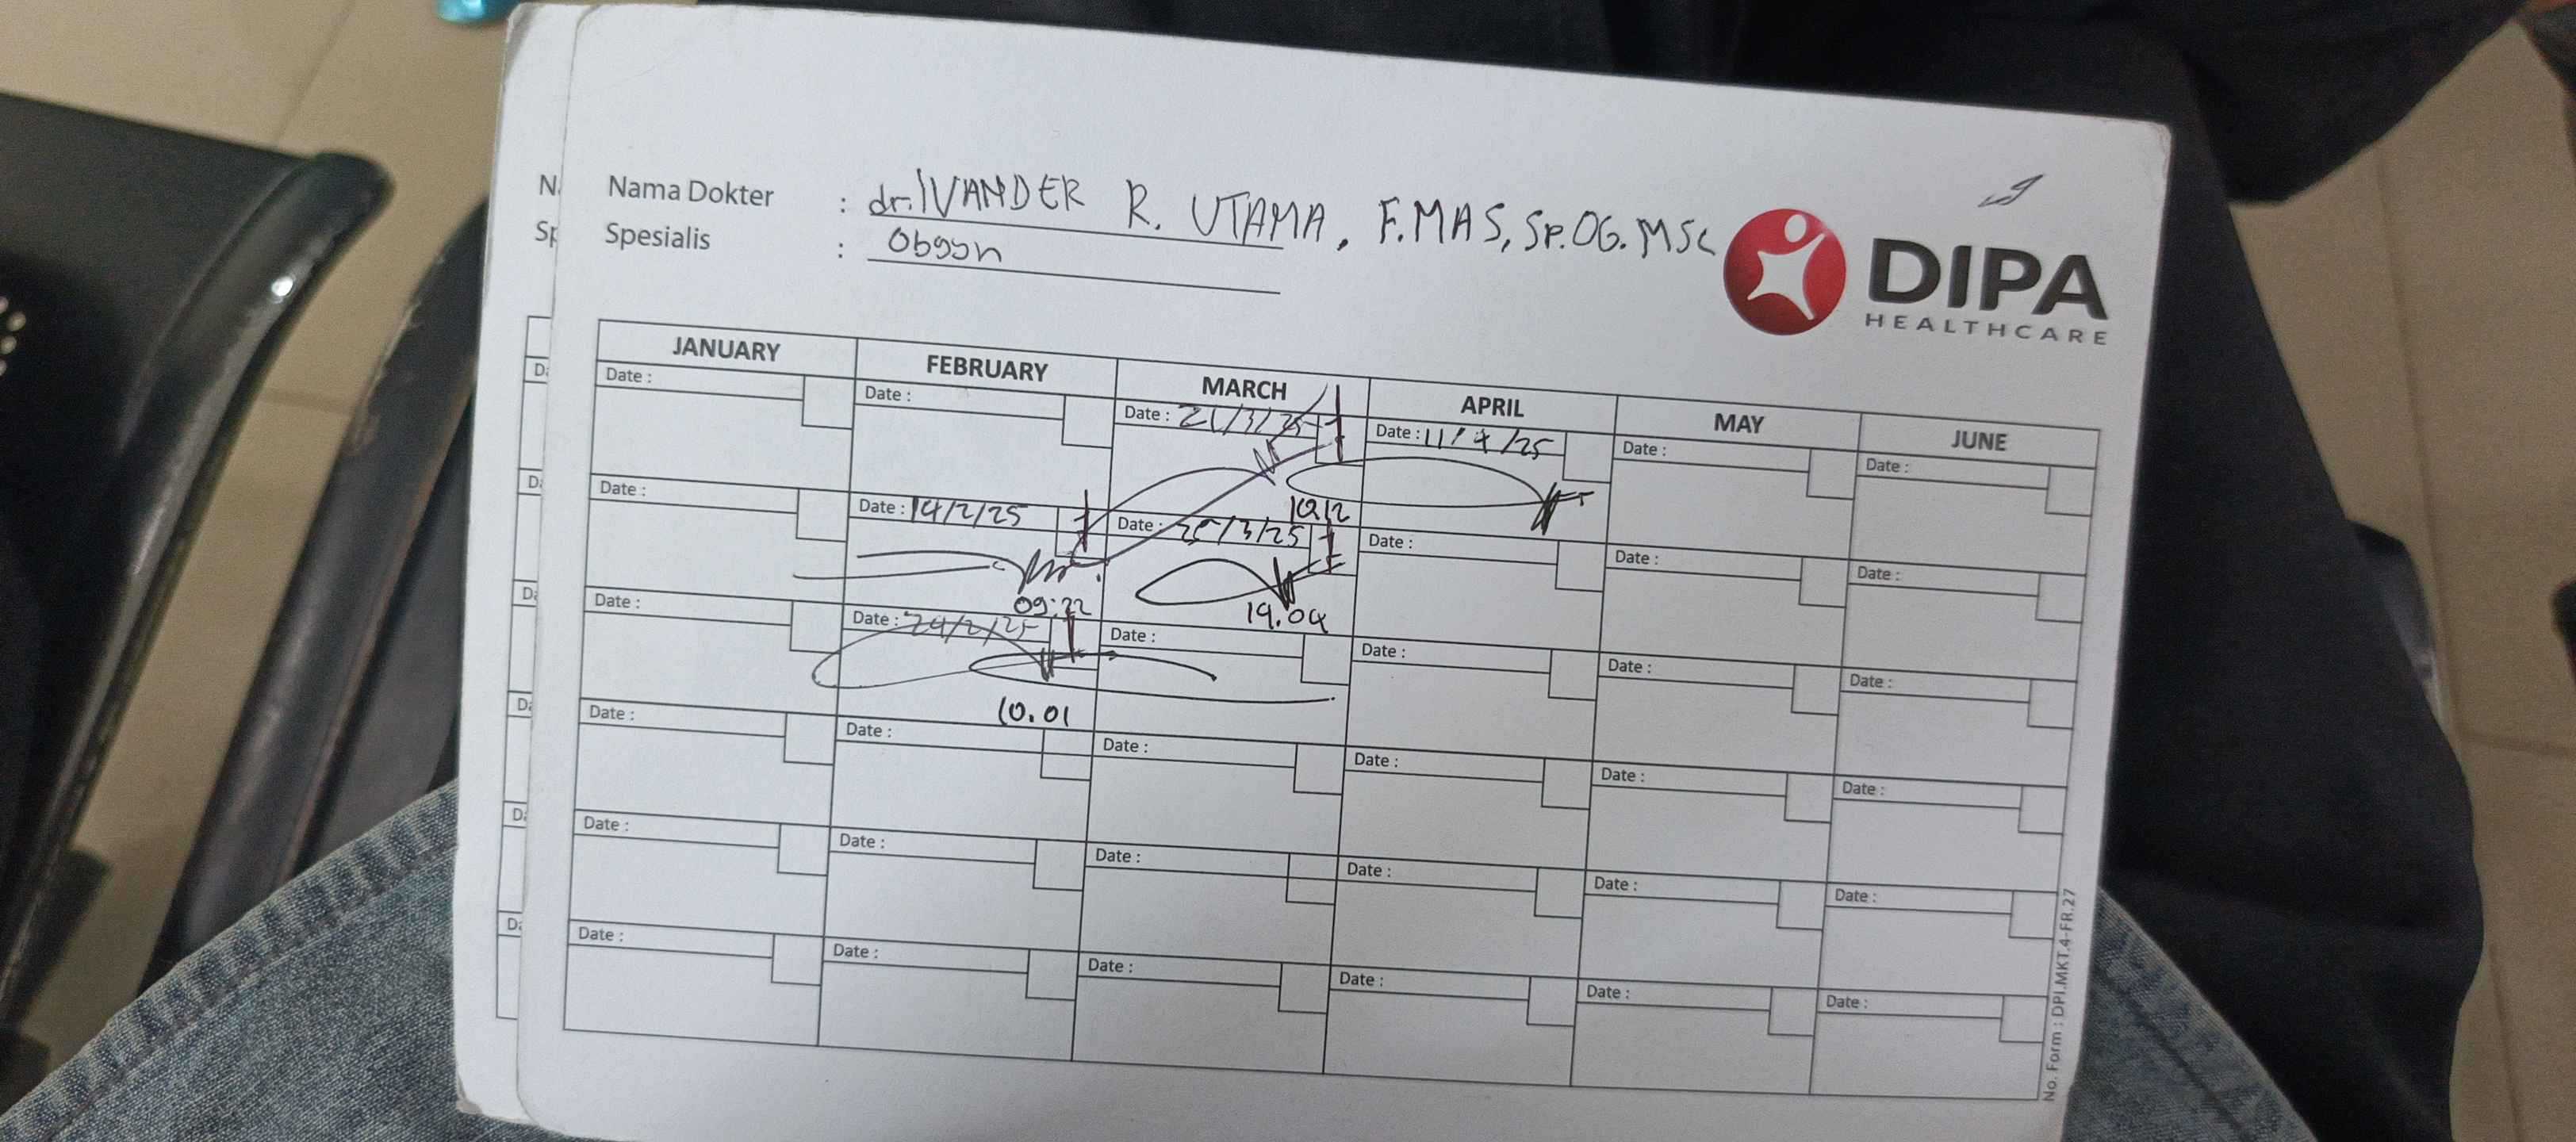 Nama Dokter : dr. IVANDER R. UTAMA, F.MAS, Sp.OG. MSc
Spesialis : Obgyn
DIPA
HEALTHCARE
JANUARY FEBRUARY MARCH APRIL MAY JUNE
Date : Date : Date : 21/3/25 Date : 11/4/25 Date : Date :
10.12
Date : Date : 14/2/25 Date : 25/3/25 Date : Date : Date :
09:22 19.04
Date : Date : 24/2/25 Date : Date : Date : Date :
10.01
Date : Date : Date : Date : Date : Date :
Date : Date : Date : Date : Date : Date :
Date : Date : Date : Date : Date : Date :
No. Form : DPI.MKT.4-FR.27